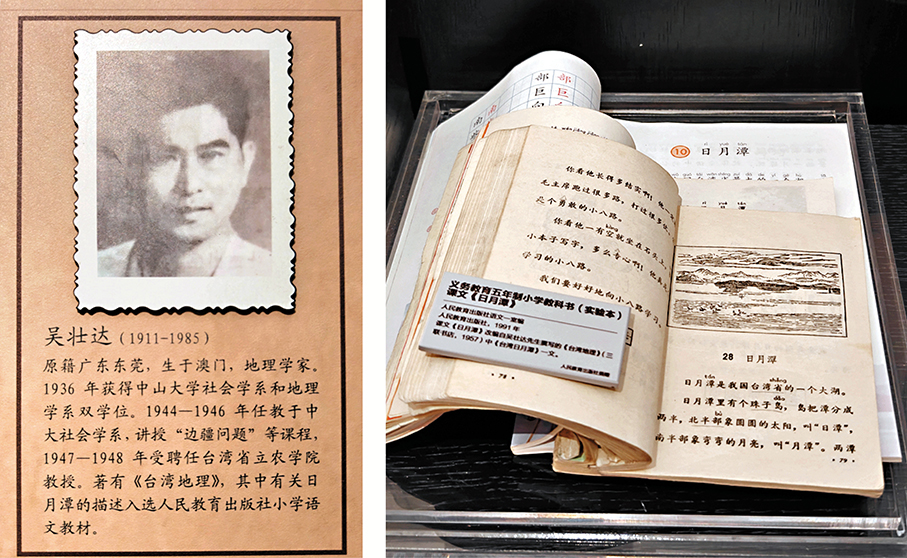 吴壮达(1911-1985)
原籍广东东莞，生于澳门，地理学家。
1936 年获得中山大学社会学系和地理
学系双学位。1944—1946 年任教于中
大社会学系，讲授“边疆问题”等课程，
1947—1948 年受聘任台湾省立农学院
教授。著有《台湾地理》，其中有关日
月潭的描述入选人民教育出版社小学语
文教材。
部 部
巨 巨
10 日月潭
你看他长得多结实啊！他
毛主席跑过很多路，打过很多仗
个勇敢的小八路。
你看他一有空就坐在石头上
小本子写字，多么专心啊！他
学习的小八路。
我们要好好地向小八路学习。
·78·
义务教育五年制小学教科书（实验本）
课文《日月潭》
人民教育出版社语文一室编
人民教育出版社，1991年
课文《日月潭》改编自吴壮达先生撰写的《台湾地理》（三
联书店，1957）中《台湾日月潭》一文。
人民教育出版社捐赠
28 日月潭
tán shěng
日月潭是我国台湾省的一个大湖。
dǎo
日月潭里有个珠子岛，岛把潭分成
bù
两半，北半部象圆圆的太阳，叫“日潭”，
南半部象弯弯的月亮，叫“月潭”。两潭
·79·